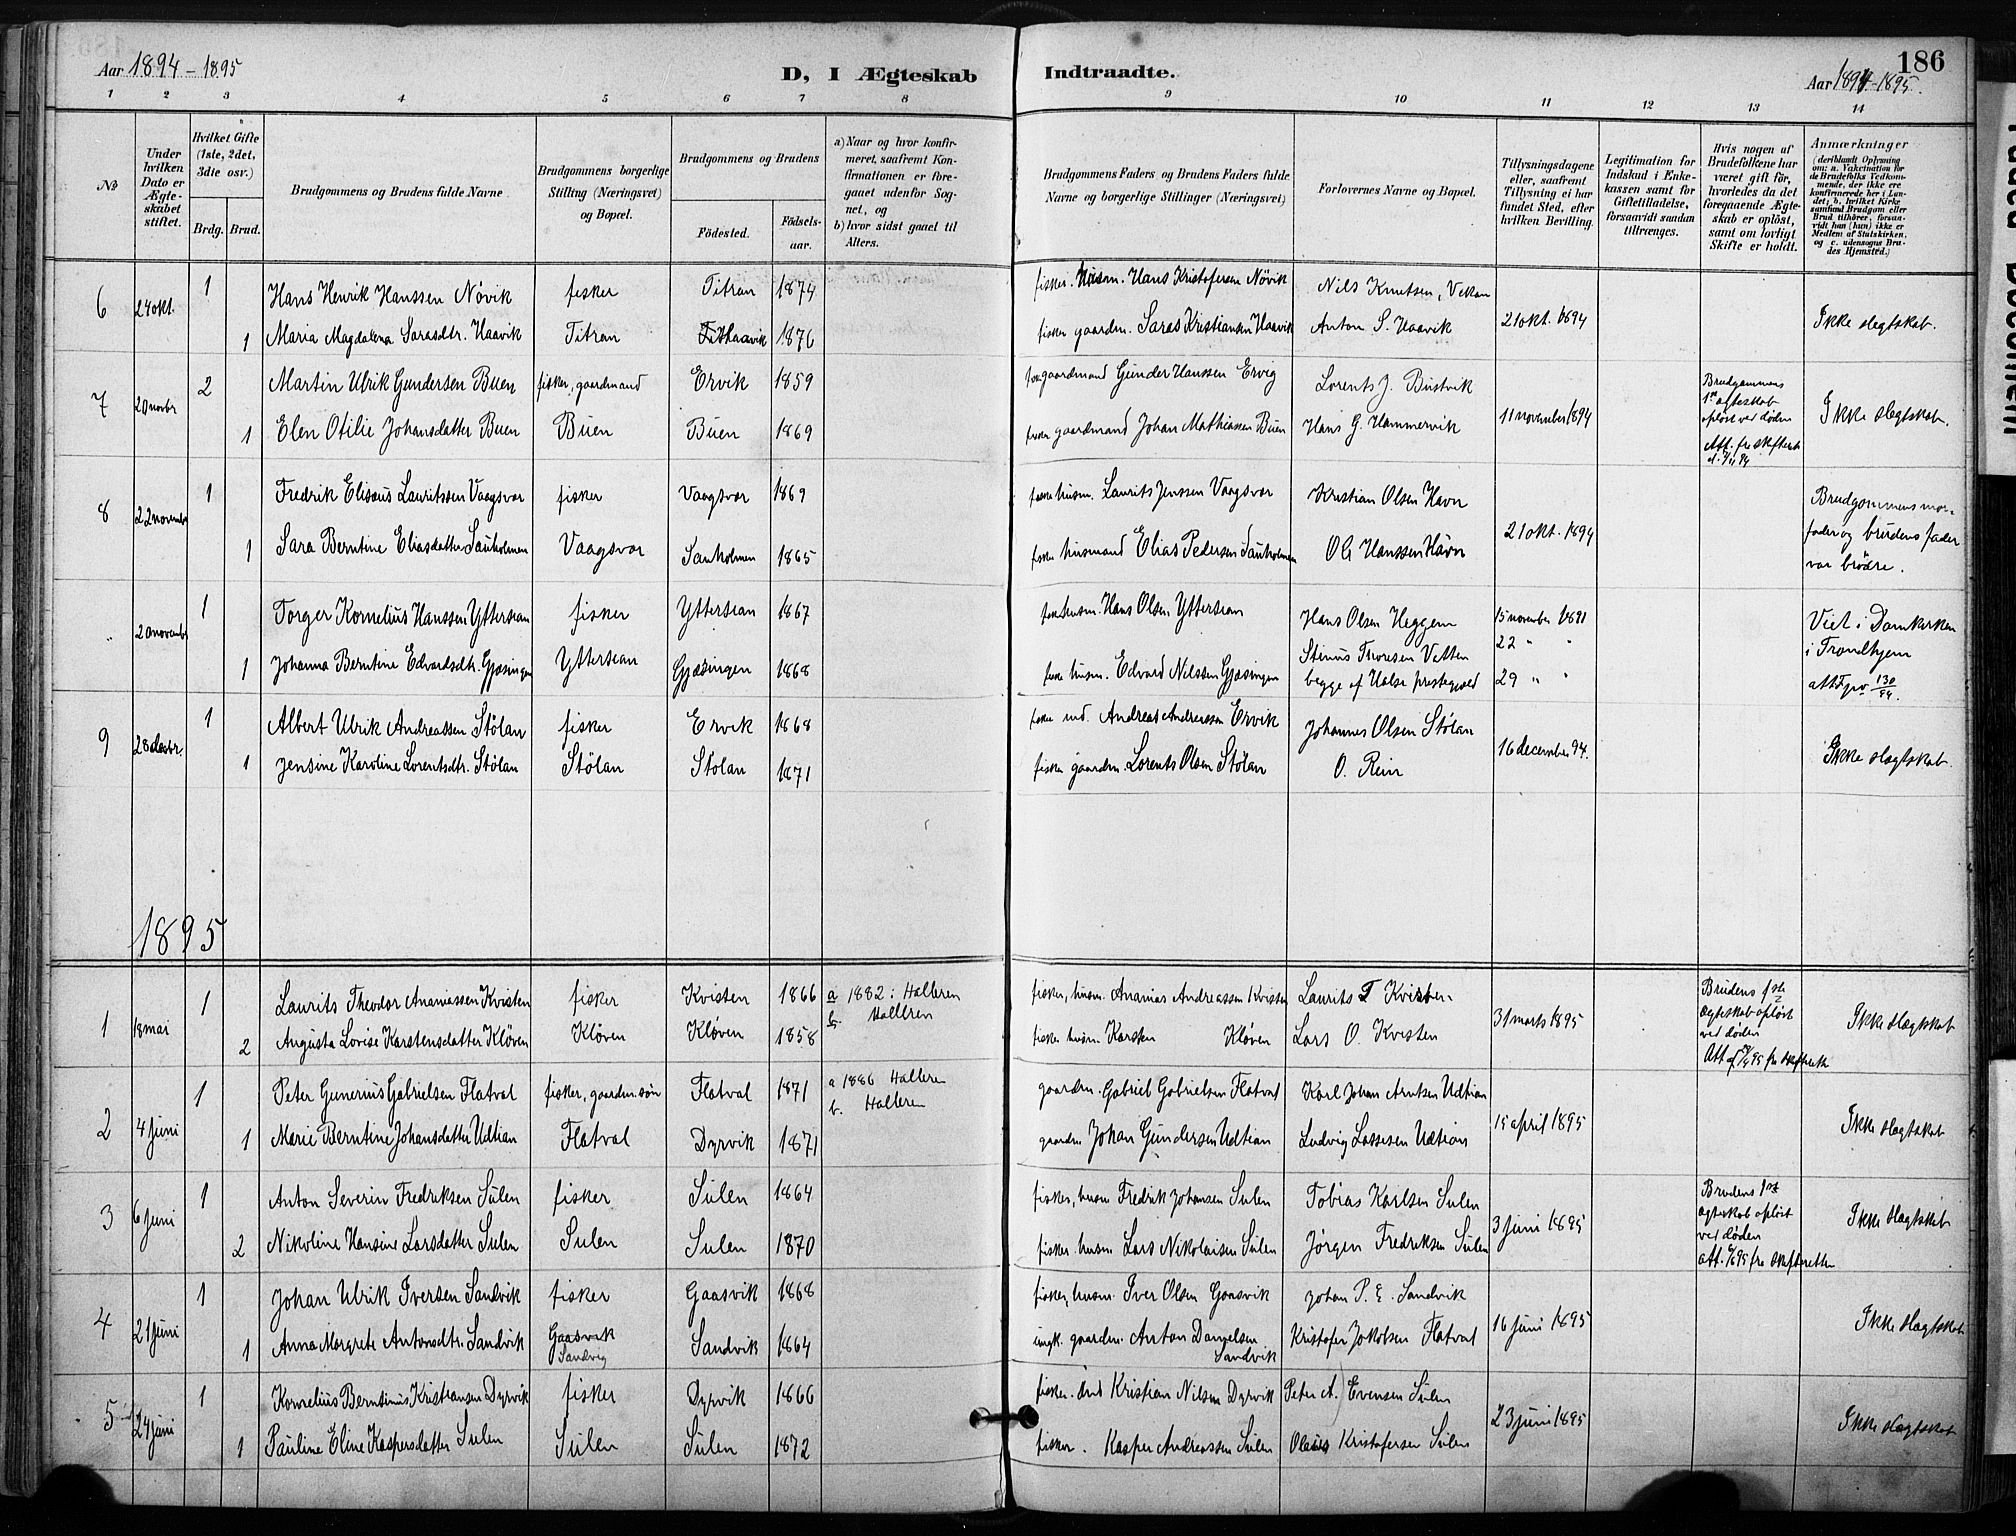 Aar 1894-1895
D, I Ægteskab Indtraadte.
186
Aar 1894-1895.
1 2 3 4 5 6 7 8 9 10 11 12 13 14
No
Under hvilken Dato er Ægteskabet stiftet.
Hvilket Gifte (1ste, 2det, 3die osv.)
Brdg. Brud.
Brudgommens og Brudens fulde Navne
Brudgommens borgerlige Stilling (Næringsvei) og Bopæl.
Brudgommens og Brudens
Fødested. Fødselsaar.
a) Naar og hvor konfirmeret, saafremt Konfirmationen er foregaaet udenfor Sognet, og
b) hvor sidst gaaet til Alters.
Brudgommens Faders og Brudens Faders fulde Navne og borgerlige Stillinger (Næringsvei)
Forlovernes Navne og Bopæl.
Tillysningsdagene eller, saafremt Tillysning ei har fundet Sted, efter hvilken Bevilling.
Legitimation for Indskud i Enkekassen samt for Giftetilladelse, forsaavidt saadan tiltrænges.
Hvis nogen af Brudefolkene har været gift før, hvorledes da det foregaaende Ægteskab er opløst, samt om lovligt Skifte er holdt.
Anmærkninger
(deriblandt Oplysning om: a. Vakcination for de Brudefolks Vedkommende, der ikke ere konfirmerede her i Landet; b. hvilket Kirkesamfund Brudgom eller Brud tilhører, forsaavidt han (hun) ikke er Medlem af Statskirken, og c. udensogns Brudes Hjemsted.)
6 24 okt. 1 Hans Henrik Hanssen Növik fisker Titran 1874 fisker. Husm. Hans Kristofersen Növik Nils Knutsen, Vikan
1 Maria Magdalena Sarasdtr. Haavik Titran Haavik 1876 fisker gaardm. Saras Kristiansen Haavik Anton S. Haavik 21 okt. 1894 Ikke slegtskab.
7 20 novbr 2 Martin Ulrik Gundersen Buen fisker, gaardmand Ervik 1859 gaardmand Gunder Hanssen Ervig Lorents J. Bustvik Brudgommens 1ste egteskab opløst ved døden
1 Elen Otilie Johansdatter Buen Buen Buen 1869 fisker gaardmand Johan Mathiassen Buen Hans G. Hammervik 11 november 1894 Att. fra skifteret Ikke slegtskab.
8 22 novembr 1 Fredrik Elisæus Lauritssen Vaagsvær fisker Vaagsvær 1869 fisker husm. Laurits Jenssen Vaagsvær Kristian Olsen Havn
1 Sara Berntine Eliasdatter Sauholmen Vaagsvær Sauholmen 1865 fisker husmand Elias Pedersen Sauholmen Ole Hanssen Havn 21 okt. 1894 Brudgommens morfader og brudens fader var brödre.
" 20 novembr 1 Torger Kornelius Hanssen Yttersian fisker Yttersian 1867 husm. Hans Olsen Yttersian Hans Olsen Heggem 15 november 1891
Stinus Thoresen Vatten 22 " "
1 Johanna Berntine Edvardsdtr. Gjæsingen Yttersian Gjæsingen 1868 fisker husm. Edvard Nilssen Gjæsingen begge af Halse prestegjeld 29 " " Viet i Domkirken i Trondhjem
130/94.
9 28 decbr. 1 Albert Ulrik Andreassen Stölan fisker Ervik 1868 fisker ind. Andreas Andreassen Ervik Johannes Olsen Stölan
1 Jensine Karoline Lorentsdtr. Stölan Stölan Stölan 1871 fisker gaardm. Lorents Olsen Stölan O. Rein 16 december 94. Ikke slegtskab.
1895
1 18 mai 1 Laurits Theodor Ananiassen Kvisten fisker Kvisten 1866 a 1882: Halleren fisker, husm. Ananias Andreassen Kvisten Laurits T Kvisten Brudens 1ste ægteskab opløst ved døden
2 Augusta Lovise Karstensdatter Klöven Klöven Kløven 1858 b. Halleren fisker husm. Karsten Kløven Lars O. Kvisten 31 marts 1895 Ikke slægtskab
2 4 juni 1 Peter Gunerius Gabrielsen Flatval fisker, gaardm. søn Flatval 1871 a 1886 Halleren gaardm. Gabriel Gabrielsen Flatval Karl Johan Arntsen Udtian
1 Marie Berntine Johansdatter Udtian Flatval Dyrvik 1871 b. Halleren gaardm. Johan Gundersen Udtian Ludvig Lassesen Udtian 15 april 1895 Ikke slegtskab
3 6 juni 1 Anton Severin Fredriksen Sulen fisker Sulen 1864 fisker, husm Fredrik Johansen Sulen Tobias Karlsen Sulen Brudens 1ste egteskab opløst ved døden
2 Nikoline Hansine Larsdatter Sulen Sulen Sulen 1870 fisker husm Lars Nikolaisen Sulen Jörgen Fredriksen Sulen 3 juni 1895 att. 1/6 95 fra skifteretten Ikke slægtskab
4 21 juni 1 Johan Ulrik Iversen Sandvik fisker Gaasvik 1868 fisker, husm. Iver Olsen Gaasvik Johan P. E. Sandvik
1 Anna Margrete Antonsdtr. Sandvik Gaasvik Sandvig Sandvik 1864 ungk. gaardm. Anton Danielsen Sandvik Kristofer Jakobsen Flatval 16 juni 1895 Ikke slægtskab
5 24 juni 1 Kornelius Berntinus Kristiansen Dyrvik fisker Dyrvik 1866 fisker. ind Kristian Nilsen Dyrvik Peter A. Evensen Sulen
1 Pauline Eline Kaspersdatter Sulen Sulen Sulen 1872 fisker. Kasper Andreassen Sulen Olaus Kristofersen Sulen 23 juni 1895 Ikke slægtskab